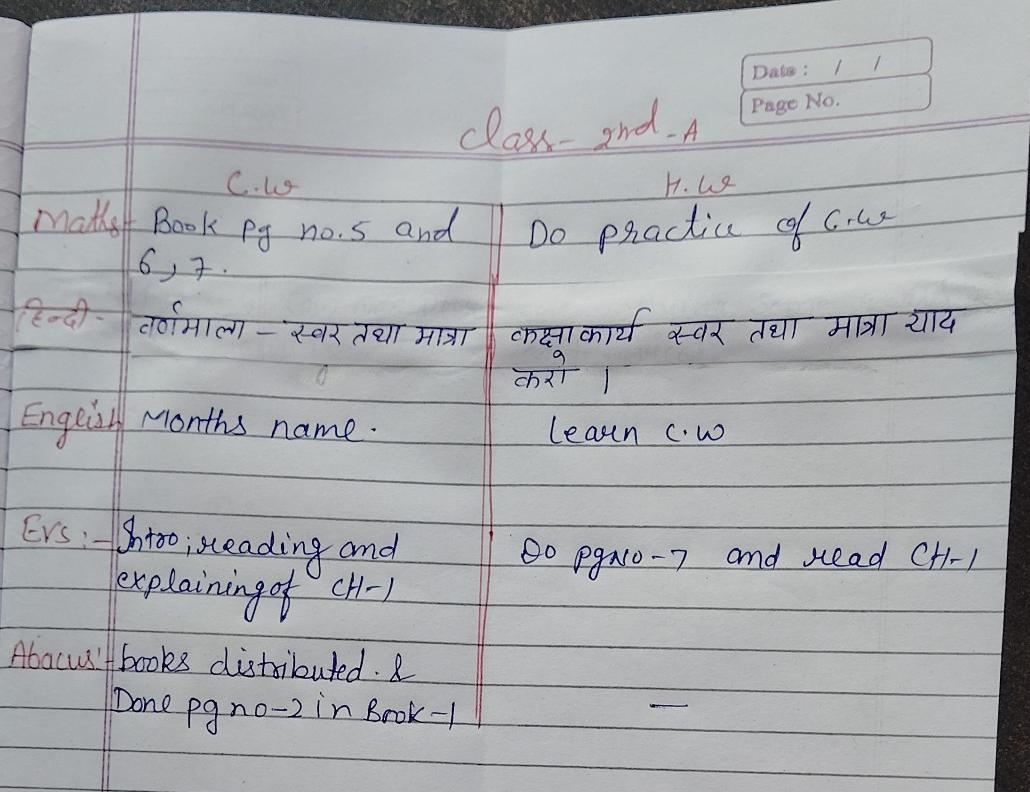 Date : / /
Page No.
Class- 2nd - A
C.W H.W
Maths- Book Pg no.5 and Do practice of C.W
6, 7.
हिन्दी- वर्णमाला - स्वर तथा मात्रा कक्षा कार्य स्वर तथा मात्रा याद
करो ।
English Months name. learn C.W
Evs :- Intro; reading and Do pgno-7 and read CH-1
explaining of CH-1
Abacus:- books distributed. &
Done pg no-2 in Book-1 —